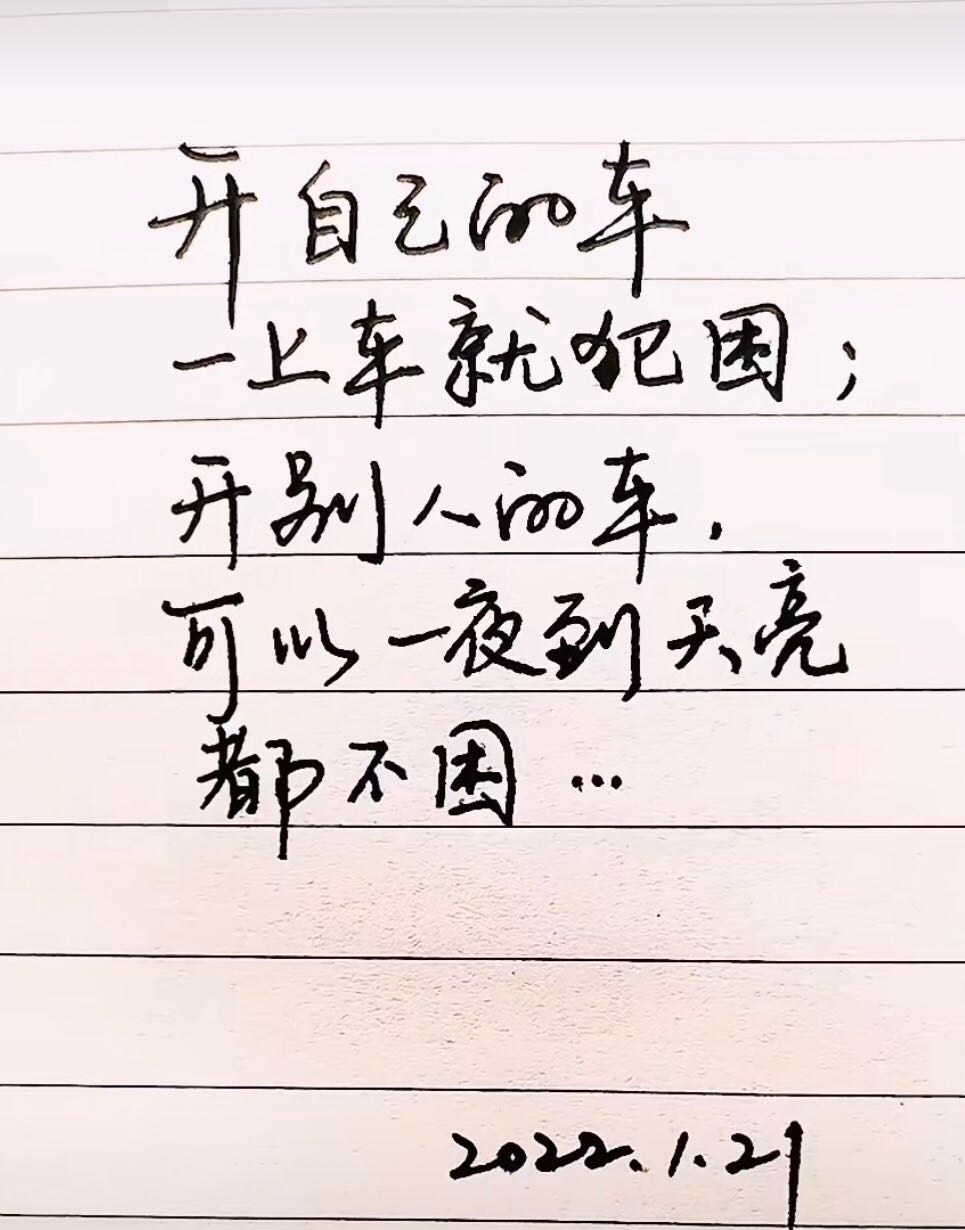 开自己的车
一上车就犯困；
开别人的车，
可以一夜到天亮
都不困…
2022.1.21